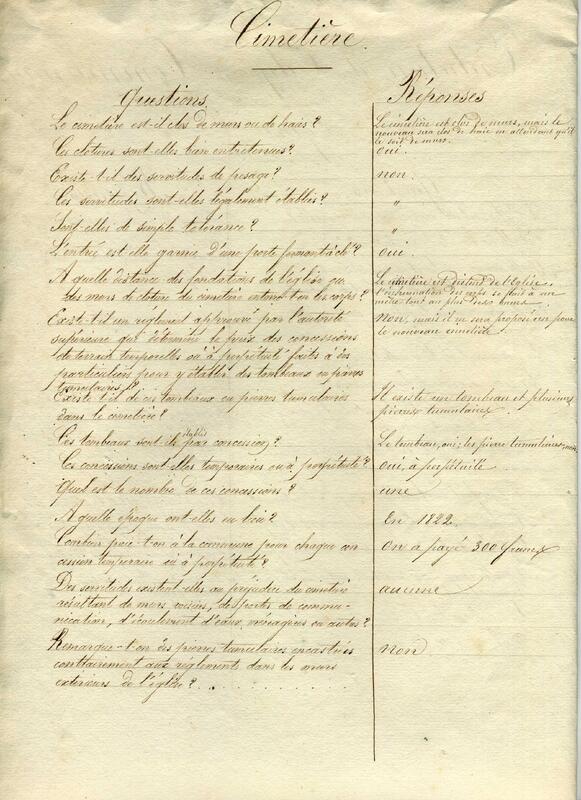 Cimetière.
Questions.
Réponses
Le cimetière est-il clos de murs ou de haies ?
Le cimetière est clos de murs, mais le
nouveau sera clos de haie en attendant qu'il
le soit de murs.
Ces clotures sont-elles bien entretenues ?
oui.
Existe-t-il des servitudes de passage ?
non.
Ces servitudes sont-elles légalement établies ?
"
Sont-elles de simple tolérance ?
"
L'entrée est-elle garnie d'une porte fermant à clé ?
oui.
A quelle distance des fondations de l'église ou
des murs de cloture du cimetière enterre-t-on les corps ?
Le cimetière est distant de l'Eglise
L'inhumation des corps se fait à un
mètre tout au plus des murs.
Existe-t-il un règlement approuvé par l'autorité
supérieure qui détermine le prix des concessions
de terrain temporelles ou à perpétuité faites à des
particuliers pour y établir des tombeaux ou pierres
tumulaires ?
non, mais il en sera proposé un pour
le nouveau cimetière.
Existe-t-il de ces tombeaux ou pierres tumulaires
dans le cimetière ?
Il existe un tombeau et plusieurs
pierres tumulaires.
Ces tombeaux sont-ils établis par concession ?
Le tombeau, oui; les pierres tumulaires, non
Ces concessions sont-elles temporaires ou à perpétuité ?
oui, à perpétuité
Quel est le nombre de ces concessions ?
une
A quelle époque ont-elles eu lieu ?
En 1822.
Combien paie-t-on à la commune pour chaque con
cession temporaire ou à perpétuité ?
On a payé 300 francs
Des servitudes existent-elles au préjudice du cimetière
résultant de murs voisins, des portes de commu-
nication, d'écoulement d'eaux ménagères ou autres ?
aucune
Remarque-t-on des pierres tumulaires encastrées
contrairement aux règlements dans les murs
exterieurs de l'église ? . . . . . . . . . . .
non